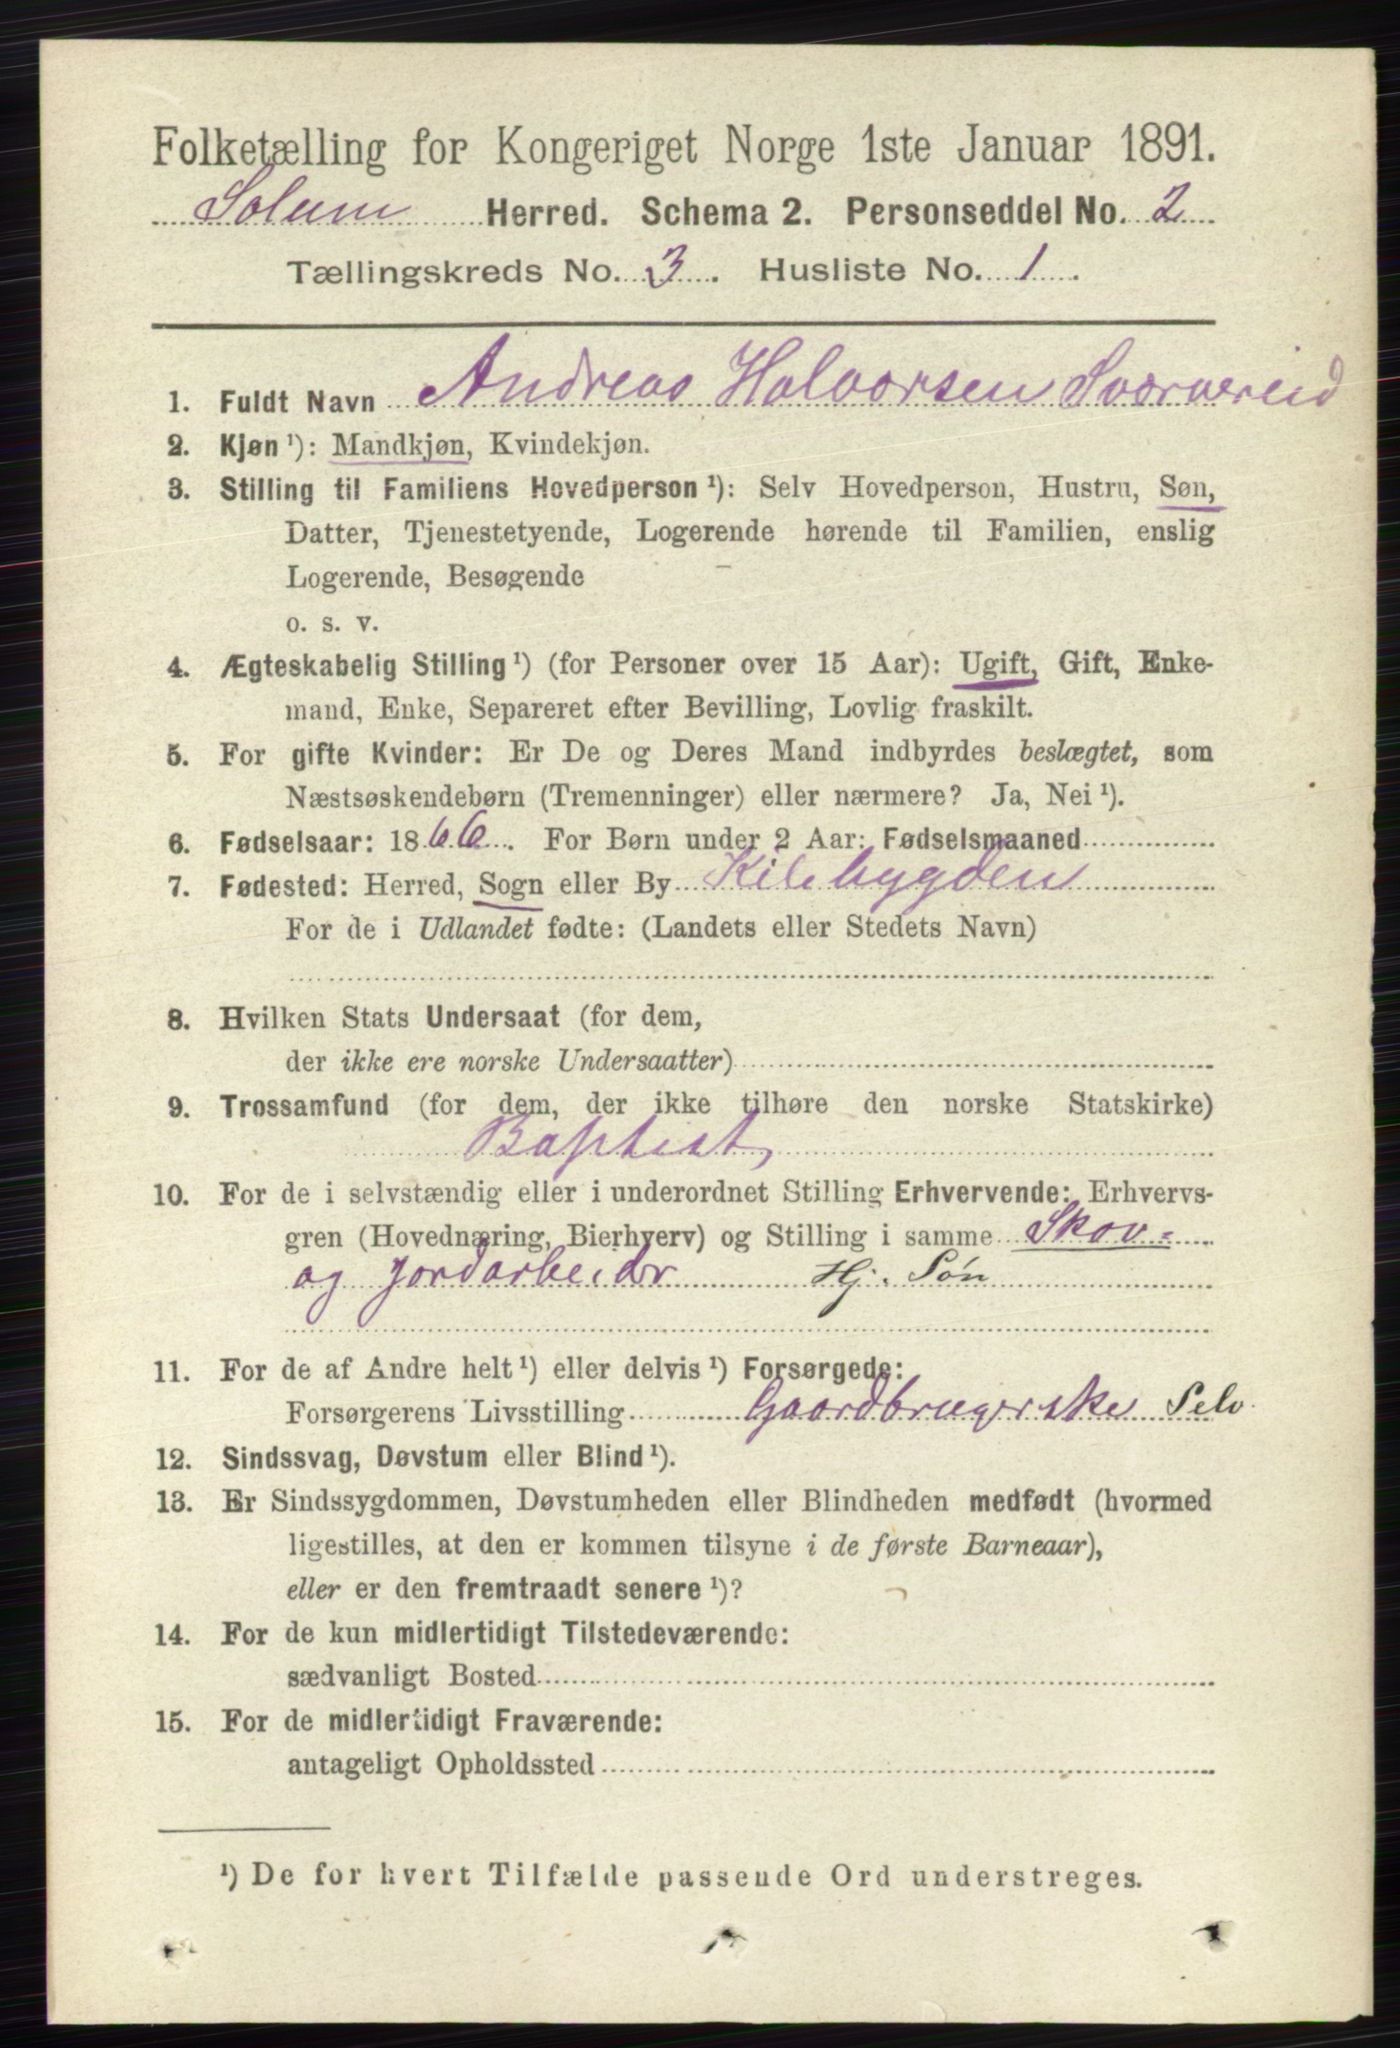 Folketælling for Kongeriget Norge 1ste Januar 1891.
Solum Herred. Schema 2. Personseddel No. 2
Tællingskreds No. 3. Husliste No. 1.
1. Fuldt Navn Andreas Halvorsen Svarvereid
2. Kjøn ¹): Mandkjøn, Kvindekjøn.
3. Stilling til Familiens Hovedperson ¹): Selv Hovedperson, Hustru, Søn,
Datter, Tjenestetyende, Logerende hørende til Familien, enslig
Logerende, Besøgende
o. s. v.
4. Ægteskabelig Stilling ¹) (for Personer over 15 Aar): Ugift, Gift, Enke-
mand, Enke, Separeret efter Bevilling, Lovlig fraskilt.
5. For gifte Kvinder: Er De og Deres Mand indbyrdes beslægtet, som
Næstsøskendebørn (Tremenninger) eller nærmere? Ja, Nei ¹).
6. Fødselsaar: 1866. For Børn under 2 Aar: Fødselsmaaned
7. Fødested: Herred, Sogn eller By Kilebygden
For de i Udlandet fødte: (Landets eller Stedets Navn)
8. Hvilken Stats Undersaat (for dem,
der ikke ere norske Undersaatter)
9. Trossamfund (for dem, der ikke tilhøre den norske Statskirke)
Baptist,
10. For de i selvstændig eller i underordnet Stilling Erhvervende: Erhvervs-
gren (Hovednæring, Bierhverv) og Stilling i samme Skov-
og Jordarbeider Hj. Søn
11. For de af Andre helt ¹) eller delvis ¹) Forsørgede:
Forsørgerens Livsstilling Gaardbrugerske Selv
12. Sindssvag, Døvstum eller Blind ¹).
13. Er Sindssygdommen, Døvstumheden eller Blindheden medfødt (hvormed
ligestilles, at den er kommen tilsyne i de første Barneaar),
eller er den fremtraadt senere ¹)?
14. For de kun midlertidigt Tilstedeværende:
sædvanligt Bosted
15. For de midlertidigt Fraværende:
antageligt Opholdssted
¹) De for hvert Tilfælde passende Ord understreges.